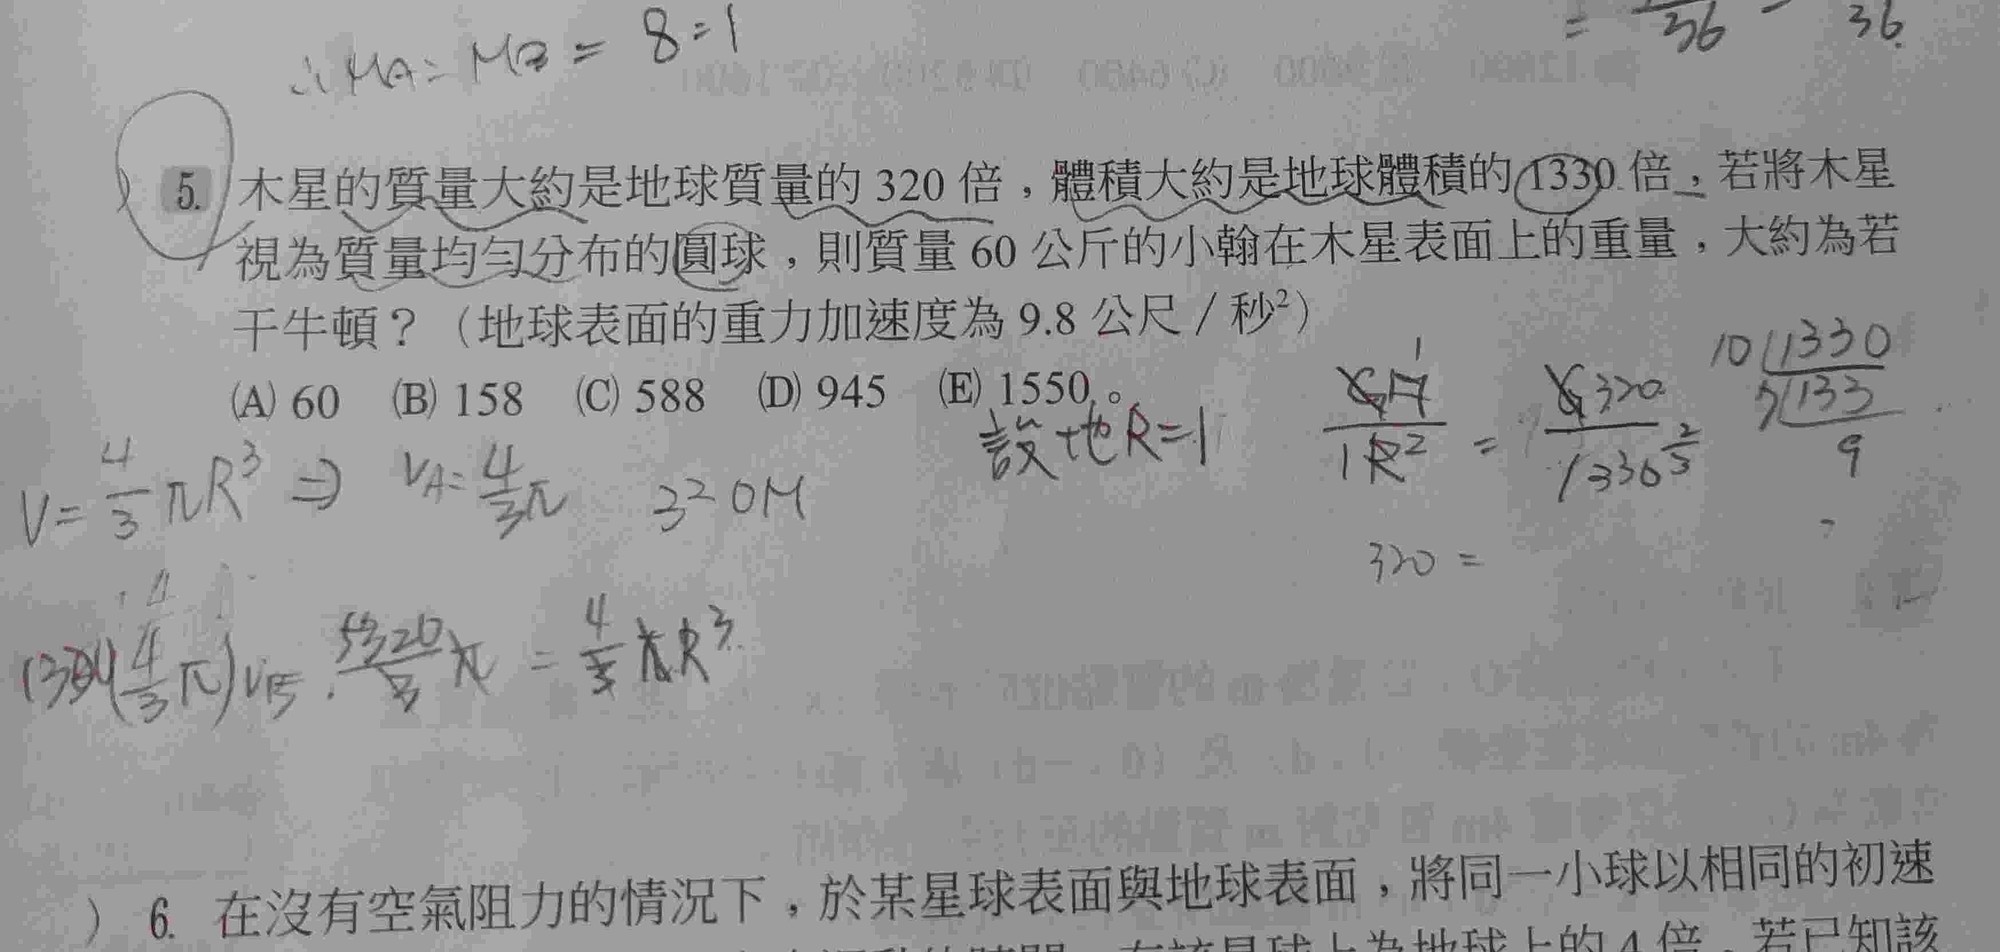 ∴MA:MB = 8:1
= 36 - 36
5. 木星的質量大約是地球質量的 320 倍，體積大約是地球體積的 1330 倍，若將木星
視為質量均勻分布的圓球，則質量 60 公斤的小翰在木星表面上的重量，大約為若
干牛頓？（地球表面的重力加速度為 9.8 公尺／秒²）
(A) 60 (B) 158 (C) 588 (D) 945 (E) 1550。
設地R=1
GM 1 / 1R² = G320 / 1330^(2/3)
10 1330
133
9
V = 4/3 πR³ ⇒ VA = 4/3 π 320M
320 =
1330(4/3 π) 5320/3 π = 4/3 πR³
) 6. 在沒有空氣阻力的情況下，於某星球表面與地球表面，將同一小球以相同的初速
在該星球上為地球上的 4 倍，若已知該